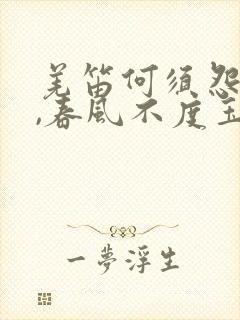 羌笛何须怨
,春风不度玉
一夢浮生